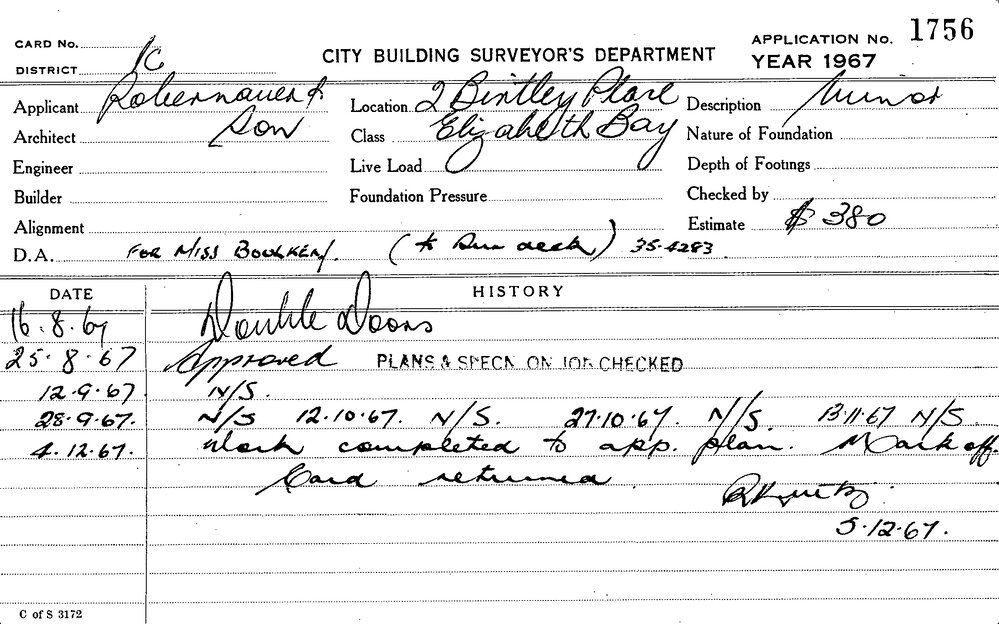 CARD No.
DISTRICT 1C
CITY BUILDING SURVEYOR'S DEPARTMENT
APPLICATION No. 1756
YEAR 1967
Applicant
Architect Son
Engineer
Builder
Alignment
D.A. FOR MISS (to Sun deck) 35-4283
Location 2 Place
Class Elizabeth Bay
Live Load
Foundation Pressure
Description Minor
Nature of Foundation
Depth of Footings
Checked by
Estimate $ 380
DATE HISTORY
16.8.67 Double Doors
25.8.67 Approved PLANS & SPECN. ON JOB CHECKED
12.9.67 N/S.
28.9.67. N/S 12.10.67. N/S. 27.10.67. N/S. 13.11.67 N/S.
4.12.67. Work completed to app. plan. Mark off.
Card returned.
5.12.67.
C of S 3172